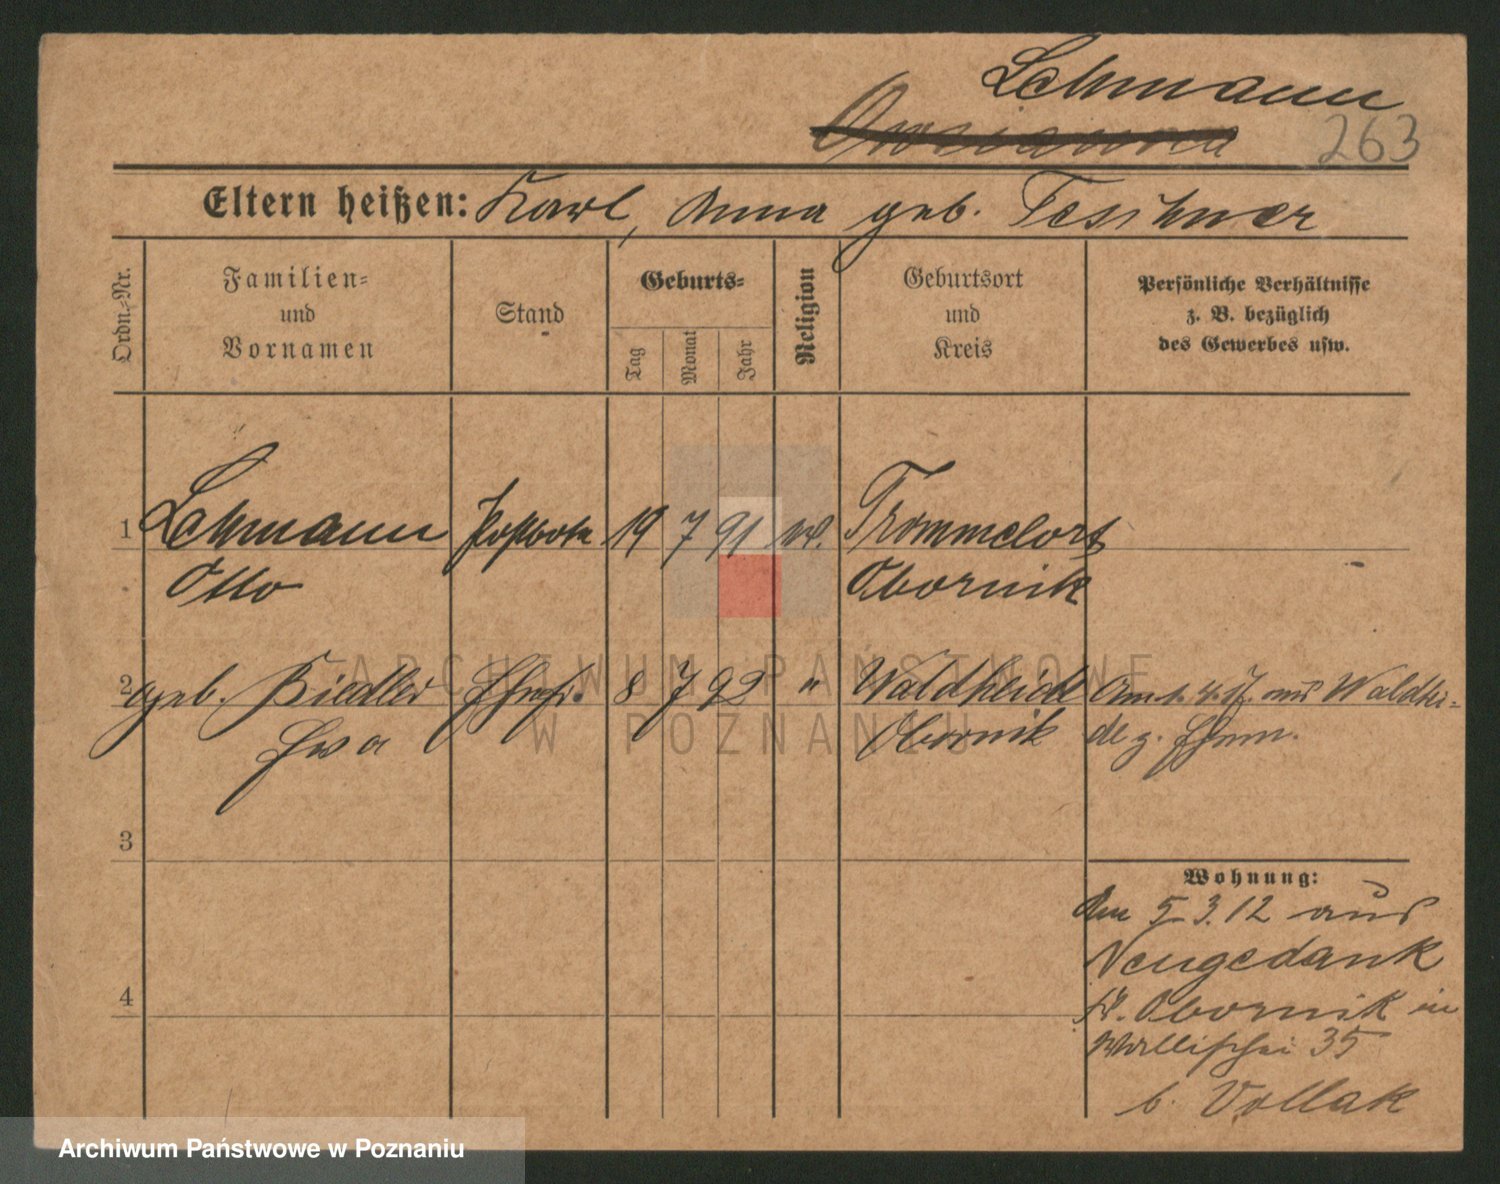 Lehmann
263
Eltern heißen: Karl, Anna geb. Teschner
Ordn.-Nr.
Familien-
und
Vornamen
Stand
Geburts-
Tag
Monat
Jahr
Religion
Geburtsort
und
Kreis
Persönliche Verhältnisse
z. B. bezüglich
des Gewerbes usw.
1 Lehmann Postbote 19 7 91 Trommelort
Otto Obornik
2 geb. Biedler Ehefr. 8 7 92 " Waldheide
Obornik
Ewa
aus Waldhei-
de z. Ehem.
3
4
Wohnung:
Am 5.3.12 aus
Neugedank
Kr. Obornik in
Wallischei 35
b. Vollak
ARCHIWUM PAŃSTWOWE
W POZNANIU
Archiwum Państwowe w Poznaniu